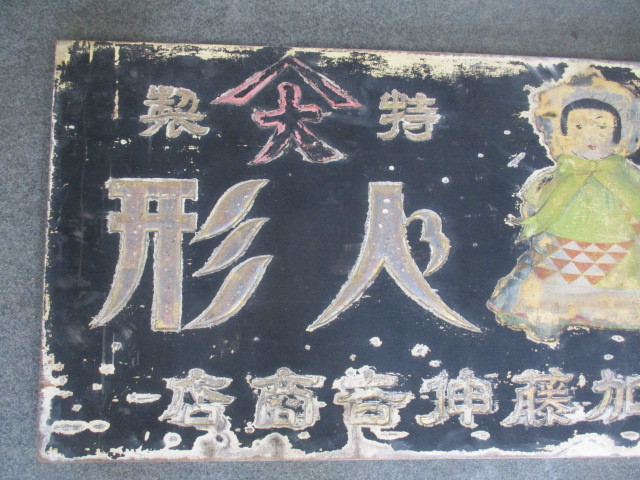 特大製
人形
加藤伸吉商店